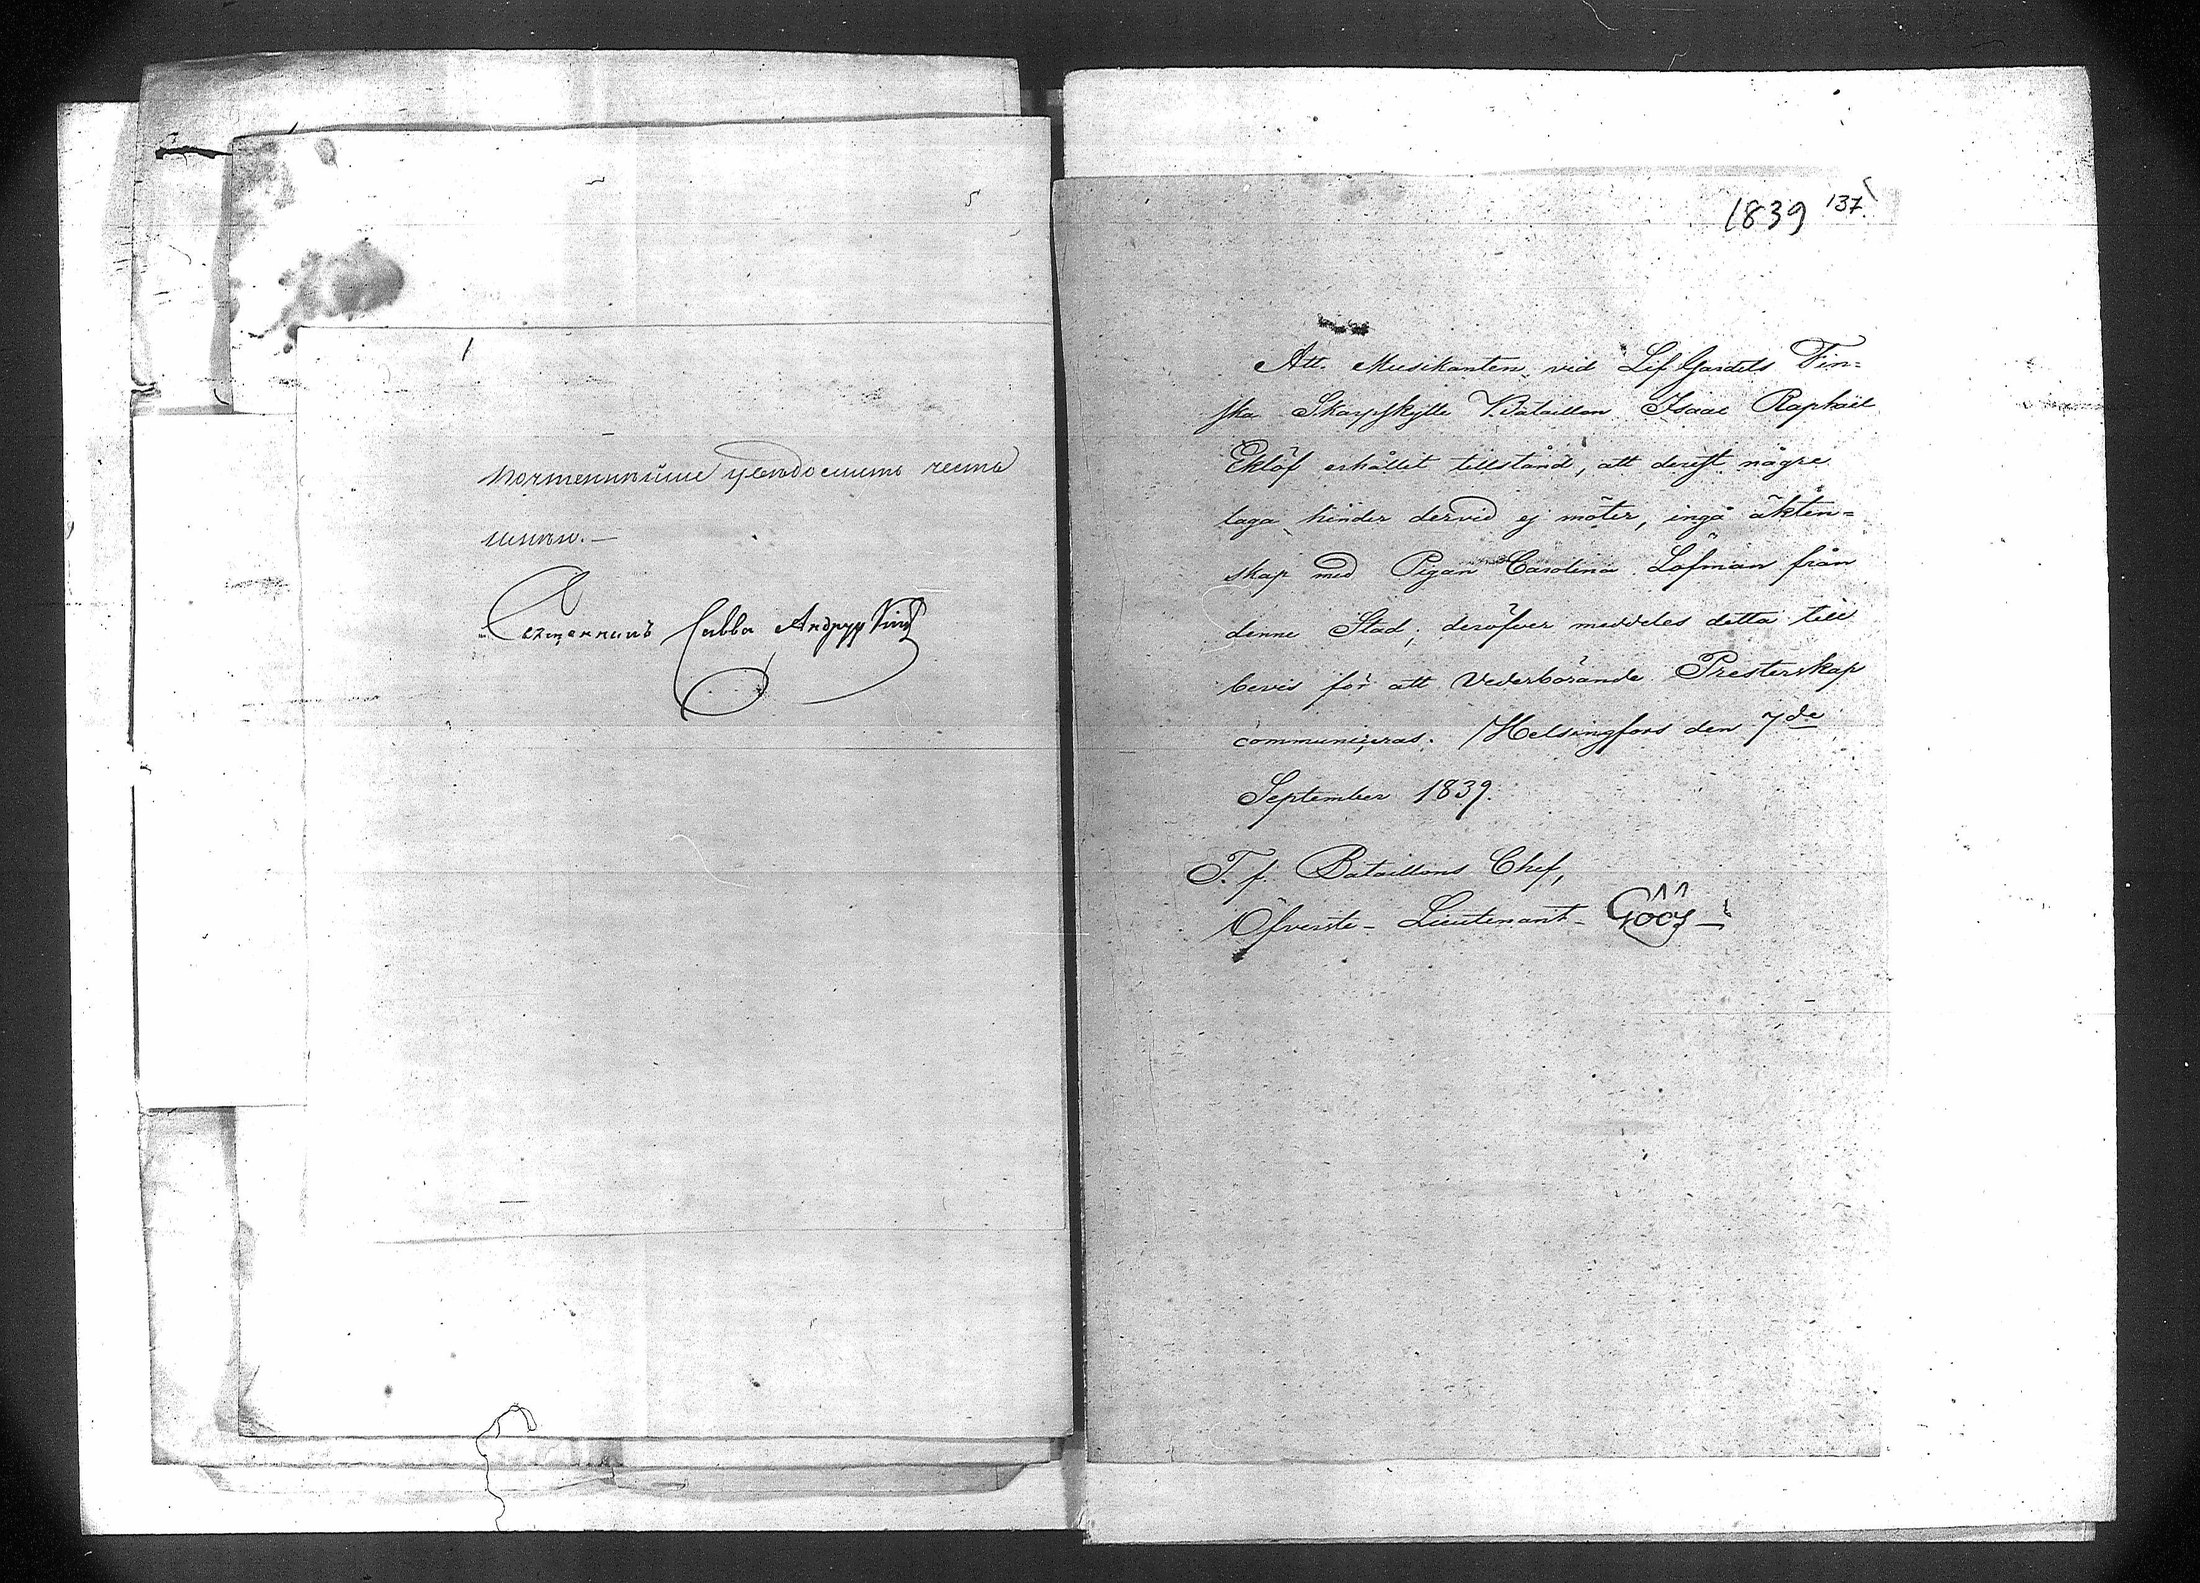 почтеннѣйше увѣдомить честь
имѣю.—
Священникъ Савва
1839 137.
Att Musikanten vid Lif Gardets Fin=
ska Skarpskytte Bataillon Isaac Raphael
Eklöf erhållit tillstånd, att derest några
laga hinder dervid ej möter, ingå äkten=
skap med Pigan Carolina Löfman från
denne Stad; deröfver meddelas detta till
bevis för att Vederbörande Presterskap
communiceras. Helsingfors den 7de
September 1839.
T. f. Bataillons Chef,
Öfverste-Lieutenant-